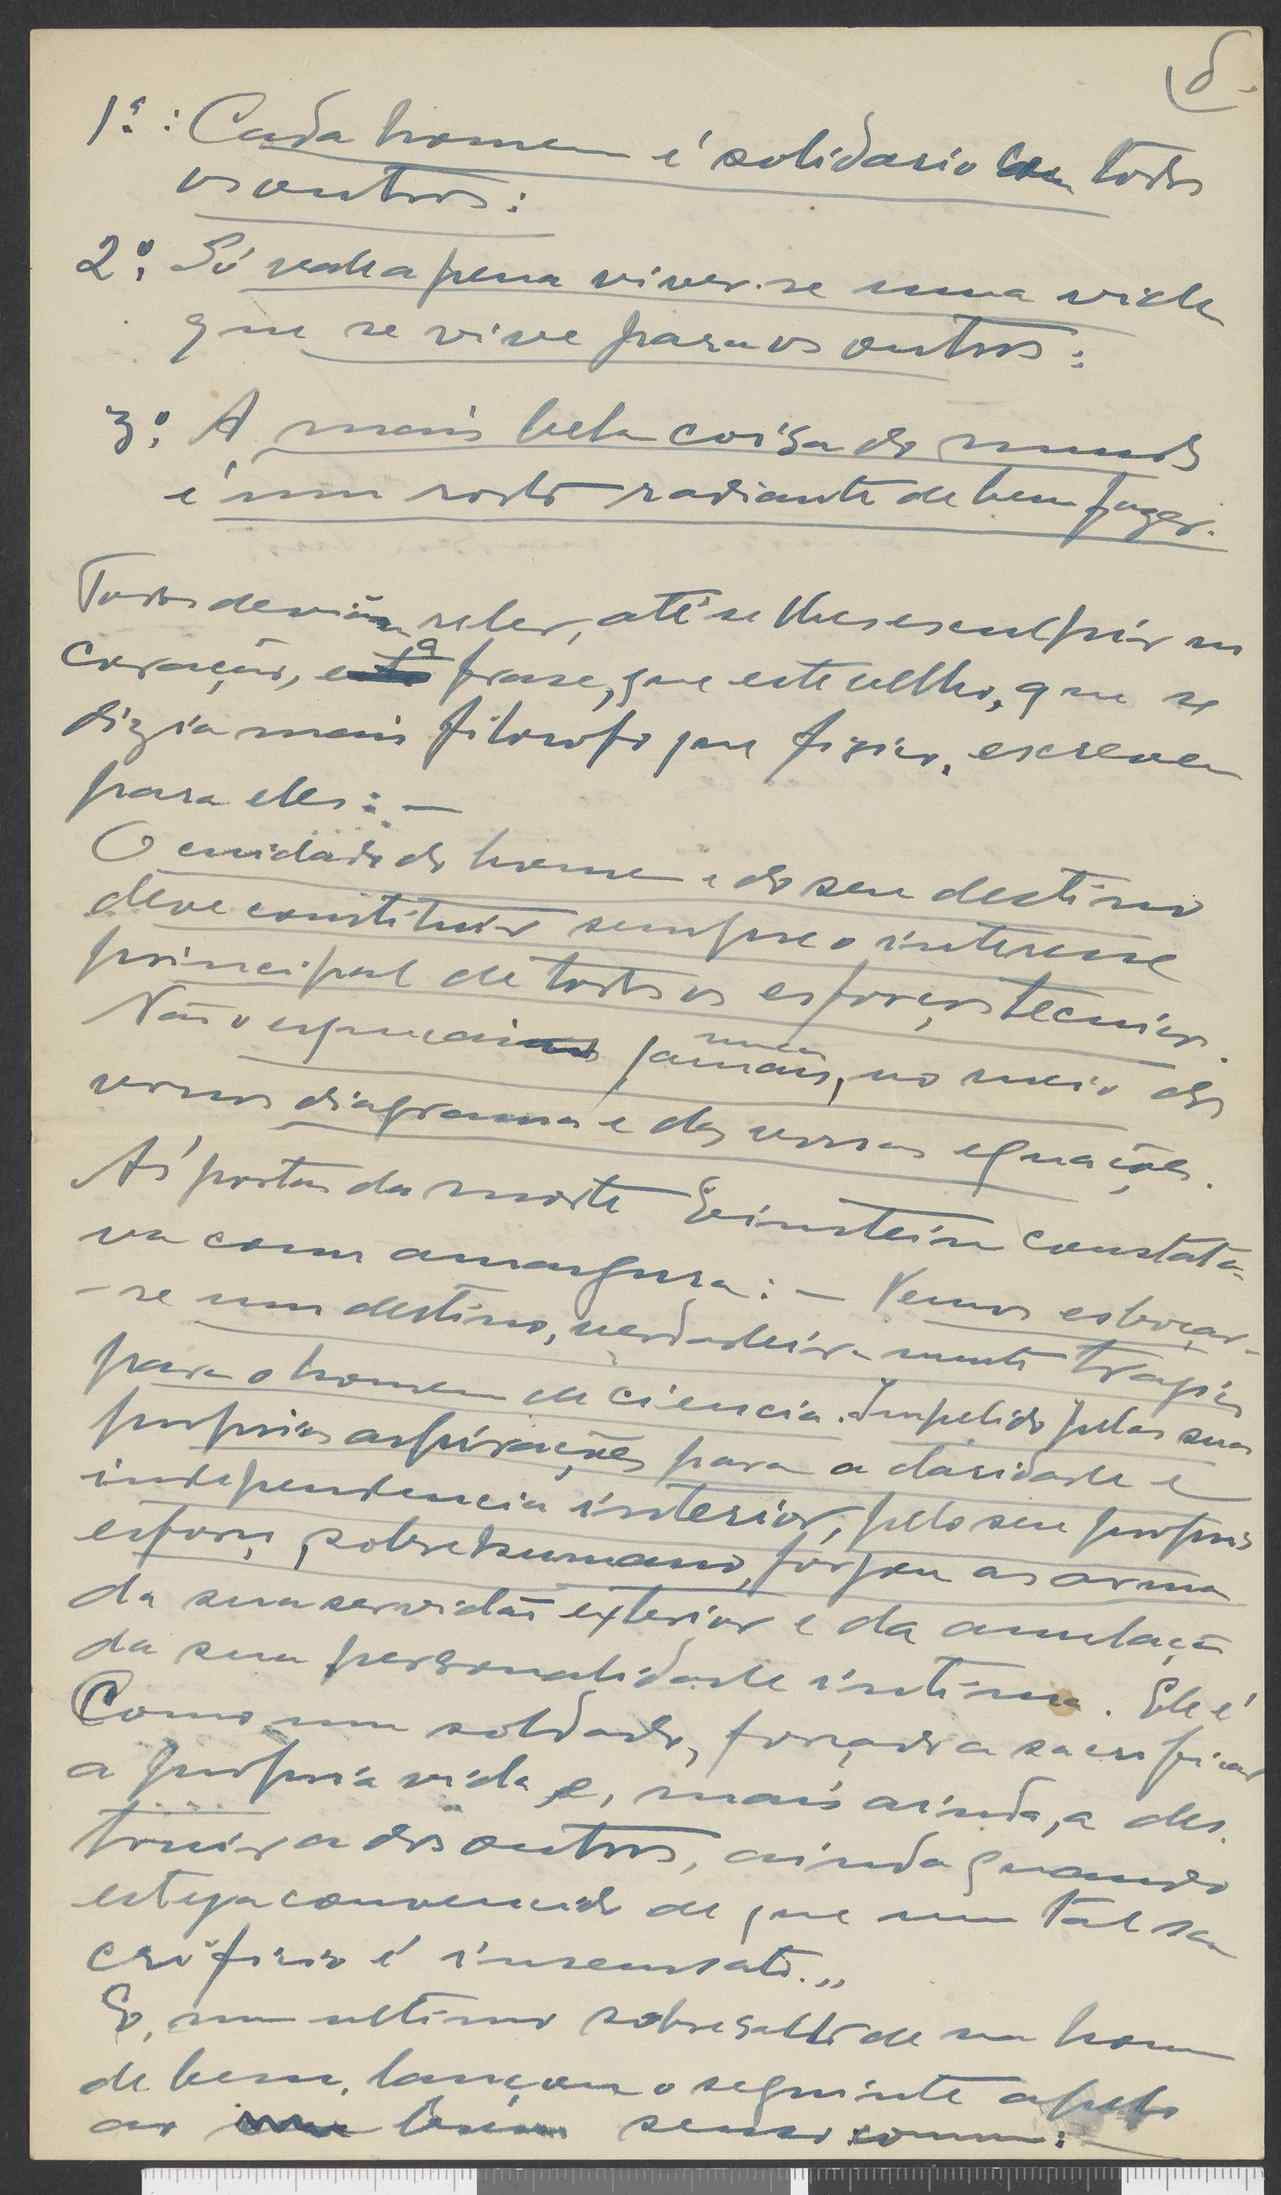 8.
1º: Cada homem é solidario com todos
os outros:
2º: Só vale a pena viver-se uma vida
que se vive para os outros:
3º: A mais bela coisa do mundo
é um rosto radiante de bem fazer.
Todos deviam reler, até se lhes esculpir no
coração, a frase, que este velho, que se
dizia mais filosofo que fisico, escreveu
para eles: —
O cuidado do homem e do seu destino
deve constituir sempre o interesse
principal de todos os esforços tecnicos.
Não o esqueçais nunca jamais, no meio dos
vossos diagramas e das vossas equações.
Ás portas da morte Einstein constata-
va com amargura: — Vemos esboçar-
-se um destino, verdadeiramente tragico
para o homem de ciencia. Impelido pelas suas
proprias aspirações para a claridade e
independencia interior, pelo seu proprio
esforço, sobrehumano, forjou as armas
da sua servidão exterior e da anulação
da sua personalidade intima. Ele é
Como um soldado, forçado a sacrificar
a propria vida e, mais ainda, a des-
truir a dos outros, ainda quando
esteja convencido de que um tal sa
crificio é insensato.„
E, num ultimo sobresalto de um homem
de bem, lançou o seguinte apelo
ao bom senso comum: —